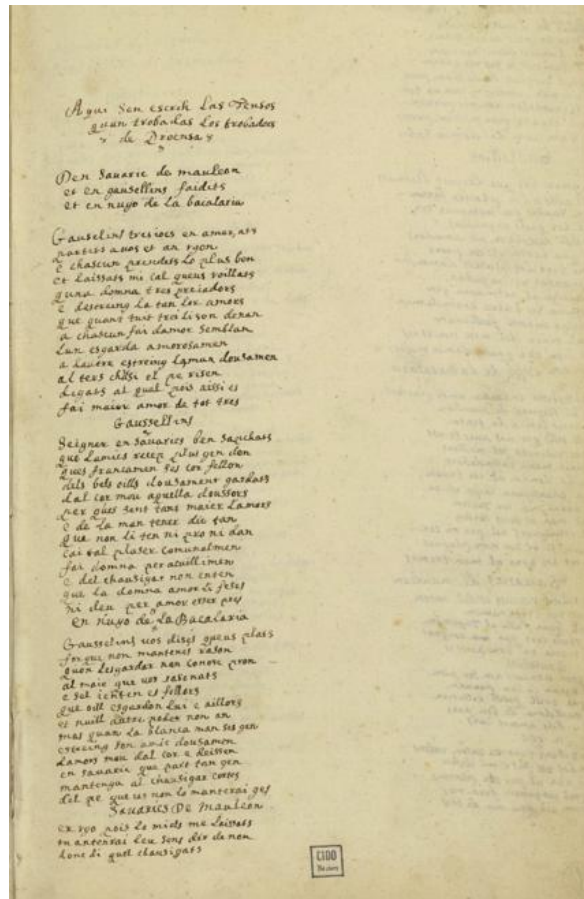 Aqui Sen escrih Las Tensos
quan trobadas Los trobadors
de Proensa
Den Savaric de mauleon
et en gausellins faidits
et en nugo de La bacalaria
Gauselins tres iocs en amor, ats
partits a vos et an ugon
e chascun prendets Lo plus bon
et Laissats mi cal queus voillats
quna domna tres preiadors
e destreing la tan lor amors
que quant tuit trei li son denan
a chascun fai damor semblan
Lun esgarda amorosamen
a Lautre estreing Laman dousamen
al ters chausi el pe risen
digats al qual pois aissi es
fai maior amor de tot tres
Gaussellins
Seigner en Savarics ben sapchats
que Lamics recep plus gen don
ques francamen ses cor fellon
dels bels oills dousament gardats
dal cor mou aquella doussors
per ques sent tans maier Lamors
e de la man tener dic tan
que non li ten ni pro ni dan
cai tal plaser comunalmen
fai domna per acuillimen
e del chausigar non enten
que la domna amor li feses
ni deu per amor esser pres
en nugo de La Bacalaria
Gausselins vos dises queus plats
for que non mantenes rason
quon lesgardar non conosc pron
al maic que vos rasonats
e sel enten es follors
que oill esgardon lui e aillors
et nuill autre poder non an
mas quan la blanca man ses gen
estreing son amic dousamen
Lamors mou dal cor e deissen
en Savaric que part tan gen
mantenga al chausigar cortes
del pe que ieu non lo manterai ges
Savarics De Mauleon
ex ugo pois Lo miels me laissats
manterrai leu sens dir de non
donc di quel chausigats
CIDO